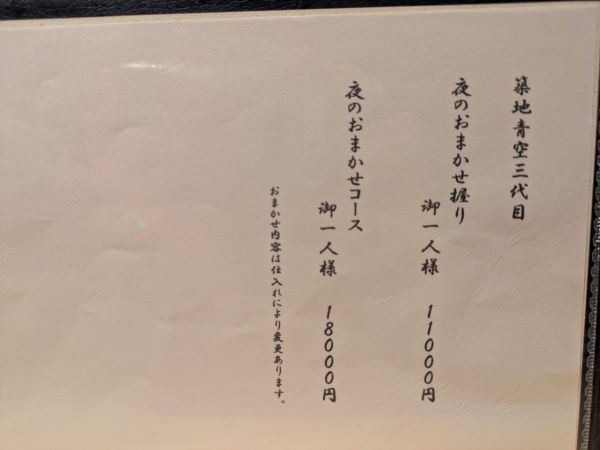 築地青空三代目
夜のおまかせ握り
御一人様 11000円
夜のおまかせコース
御一人様 18000円
おまかせ内容は仕入れにより変更あります。